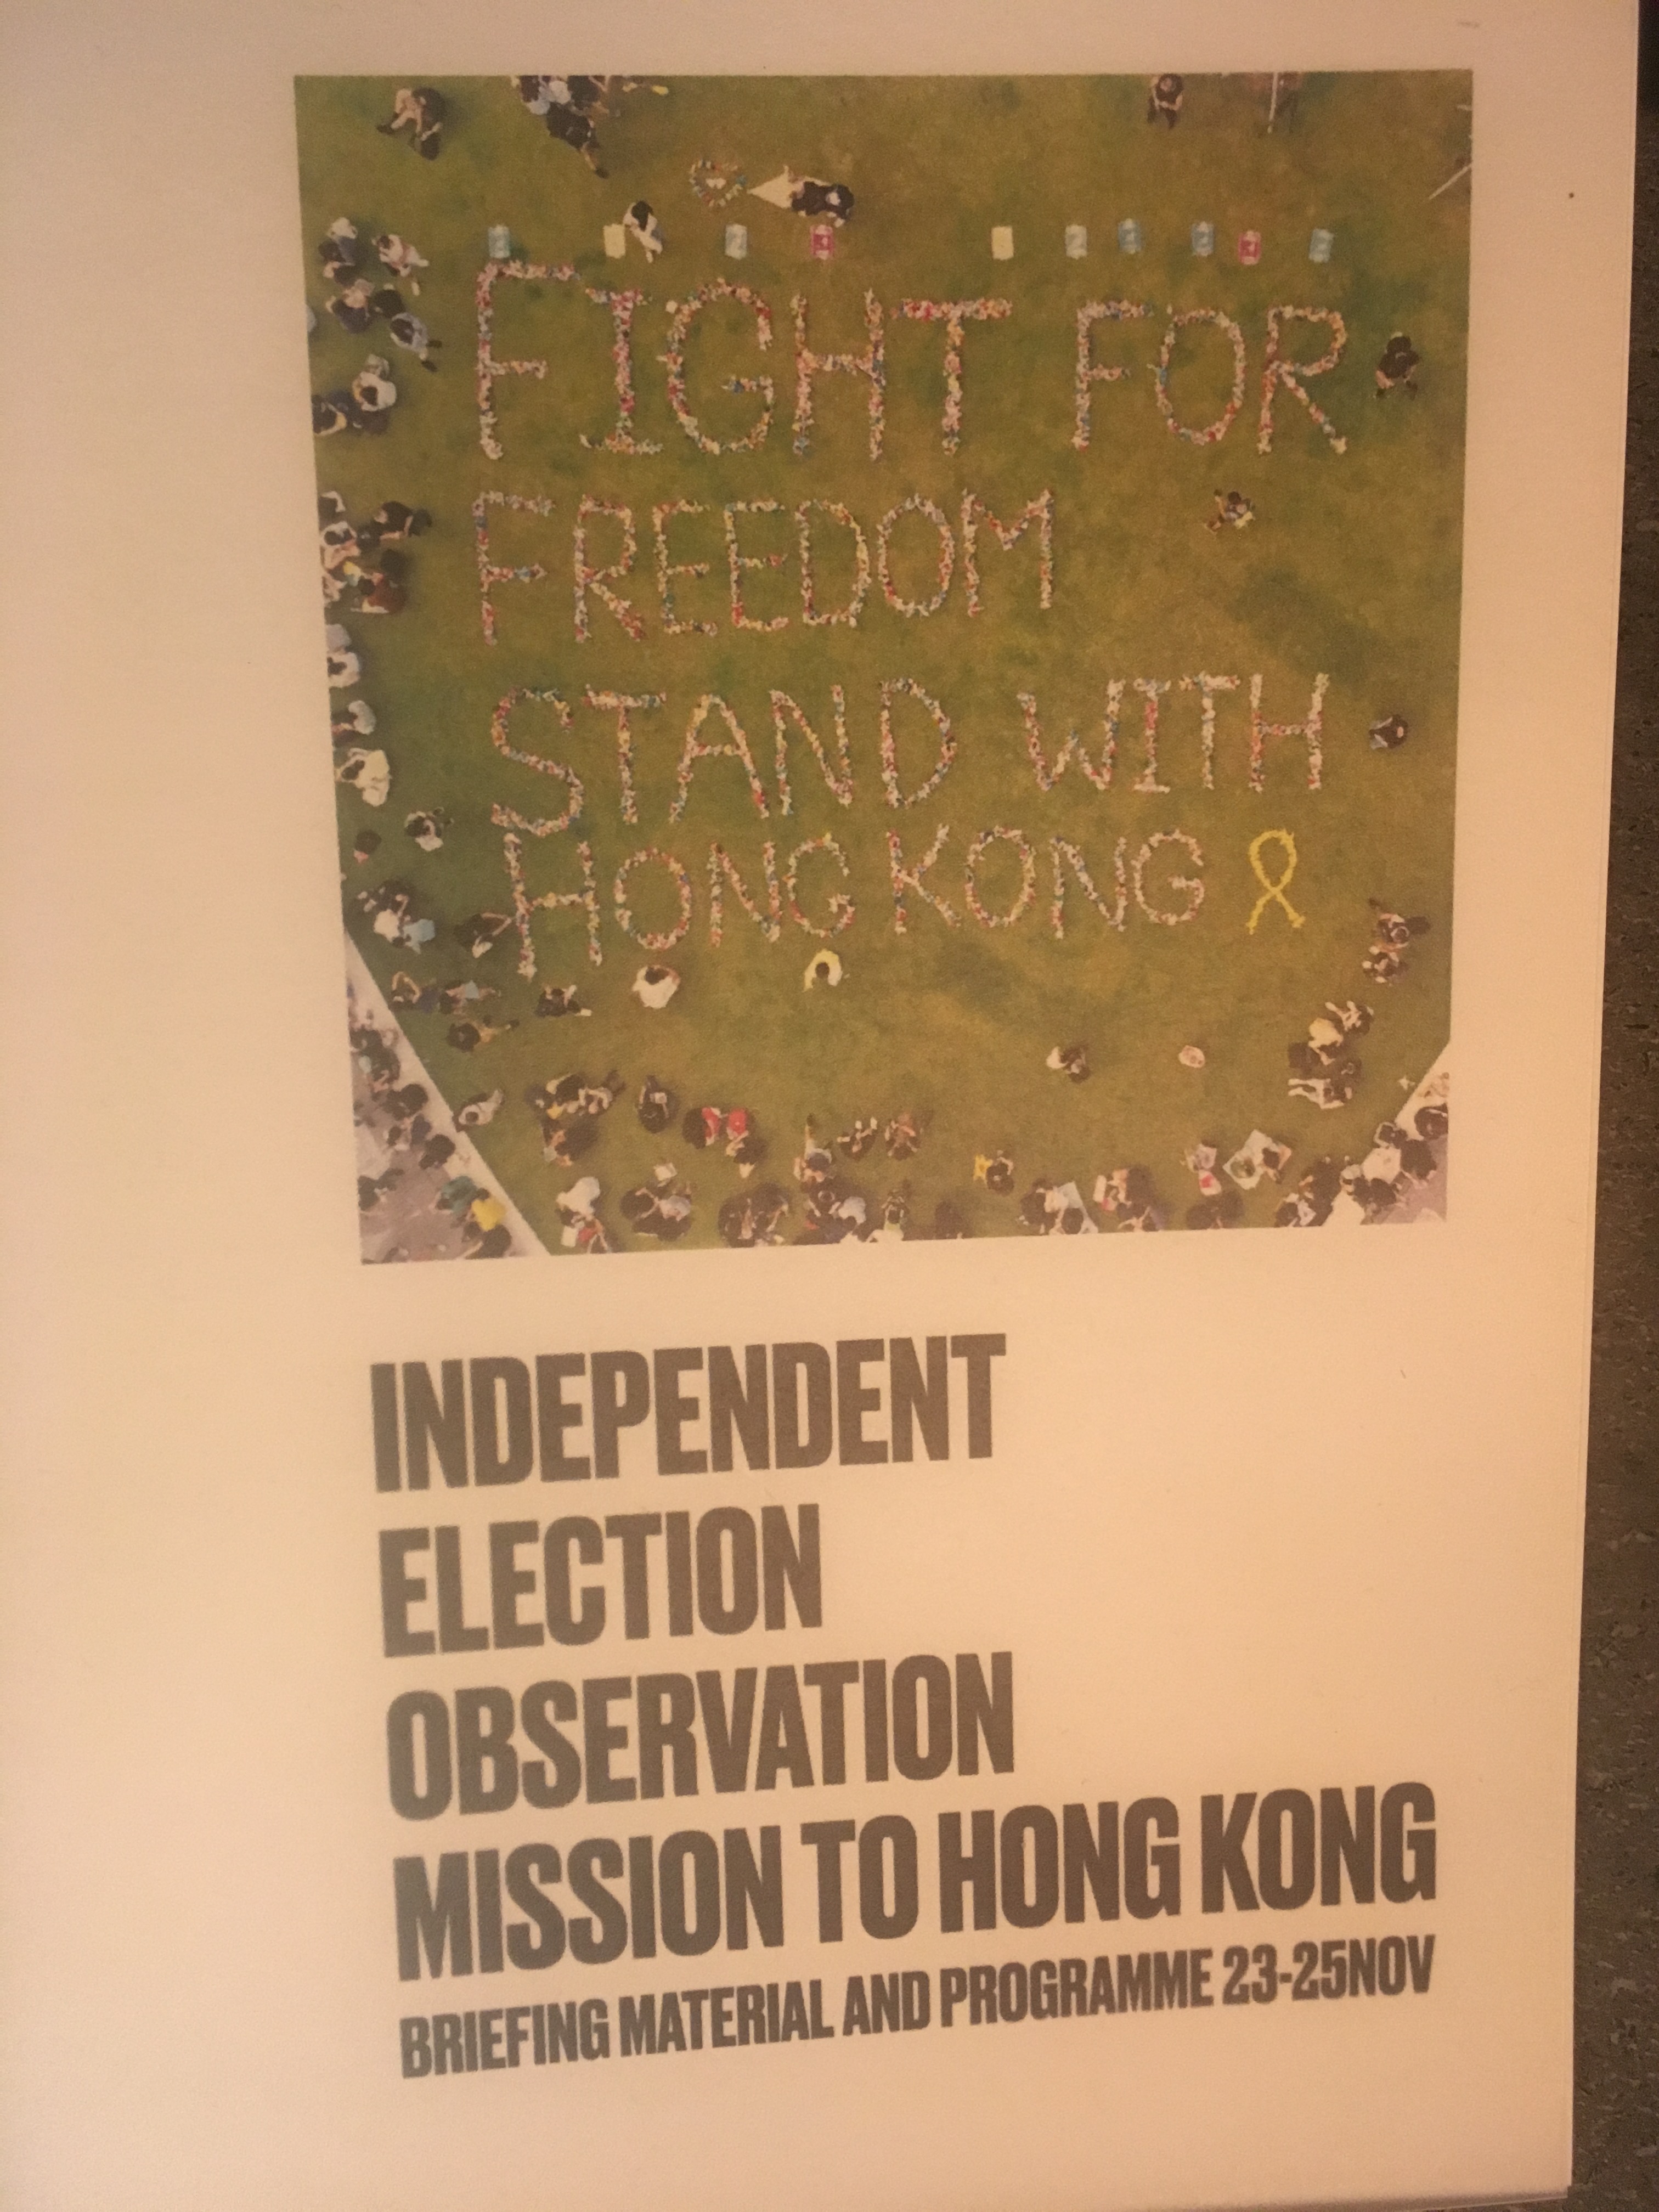 FIGHT FOR
FREEDOM
STAND WITH
HONG KONG
INDEPENDENT
ELECTION
OBSERVATION
MISSION TO HONG KONG
BRIEFING MATERIAL AND PROGRAMME 23-25NOV